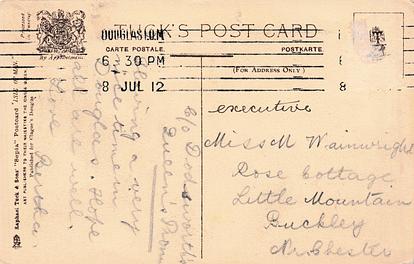 TUCK'S POST CARD
CARTE POSTALE.
POSTKARTE.
(For Address Only)
By Appointment
DOUGLAS I.O.M.
6 30 PM
8 JUL 12
Raphael Tuck & Sons' "Sepia" Postcard
ART PUBLISHERS TO THEIR MAJESTIES THE KING & QUEEN
Published for
Douglas
c/o Dodsworth's
Queen's Prom
Having a very
nice time in
Douglas. Hope
all are well.
Love Bertha.
executive
Miss M Wainwright
Rose Cottage
Little Mountain
Buckley
Nr. Chester